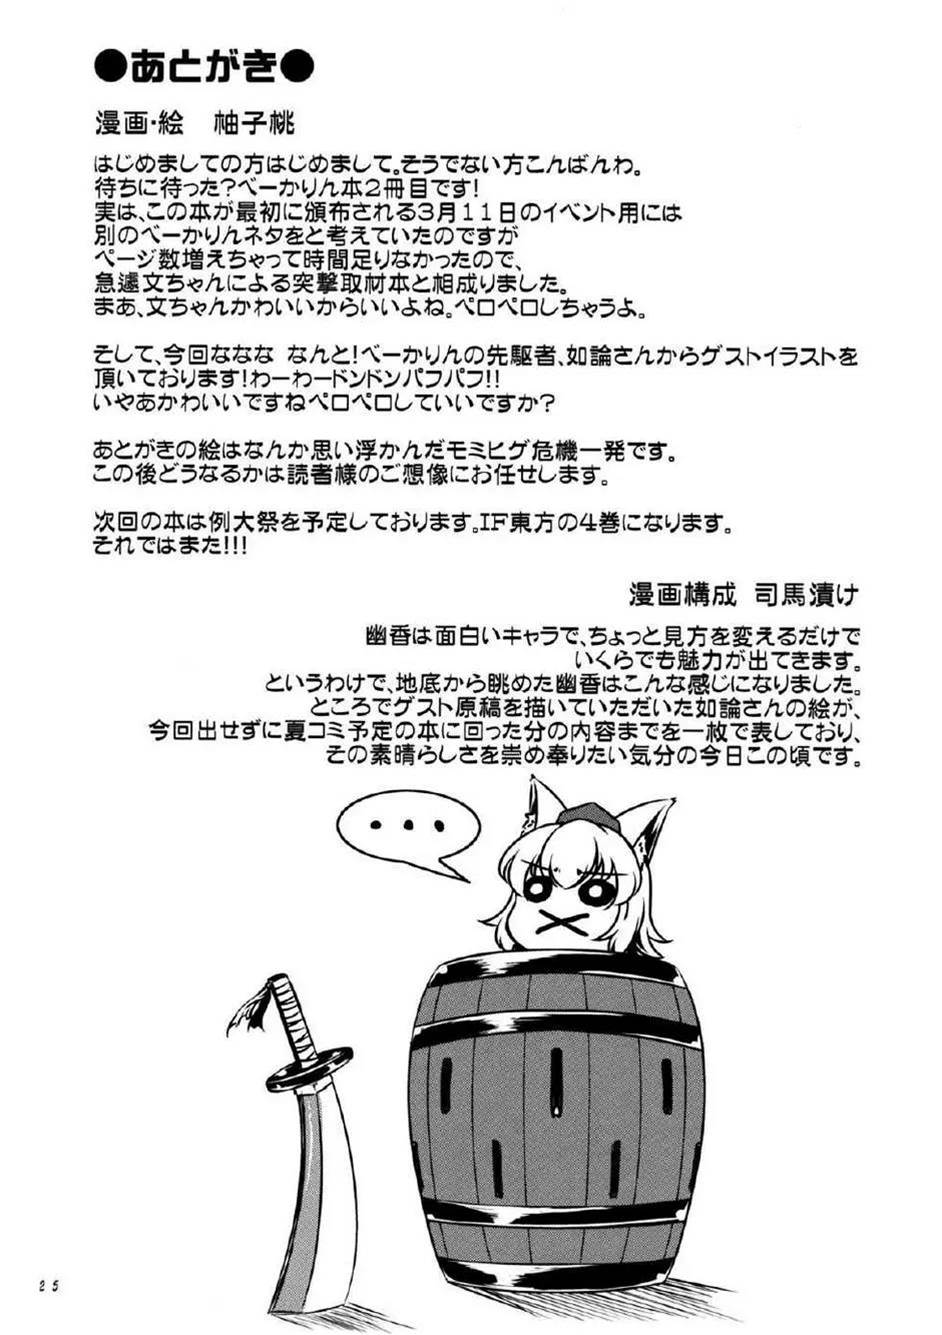 ●あとがき●
漫画・絵　柚子桃
はじめましての方はじめまして。そうでない方こんばんわ。
待ちに待った?べーかりん本2冊目です!
実は、この本が最初に頒布される3月11日のイベント用には
別のべーかりんネタをと考えていたのですが
ページ数増えちゃって時間足りなかったので、
急遽文ちゃんによる突撃取材本と相成りました。
まあ、文ちゃんかわいいからいいよね。ペロペロしちゃうよ。
そして、今回ななな なんと!べーかりんの先駆者、如論さんからゲストイラストを
頂いております!わーわードンドンパフパフ!!
いやあかわいいですねペロペロしていいですか?
あとがきの絵はなんか思い浮かんだモミヒゲ危機一発です。
この後どうなるかは読者様のご想像にお任せします。
次回の本は例大祭を予定しております。IF東方の4巻になります。
それではまた!!!
漫画構成　司馬漬け
幽香は面白いキャラで、ちょっと見方を変えるだけで
いくらでも魅力が出てきます。
というわけで、地底から眺めた幽香はこんな感じになりました。
ところでゲスト原稿を描いていただいた如論さんの絵が、
今回出せずに夏コミ予定の本に回った分の内容までを一枚で表しており、
その素晴らしさを崇め奉りたい気分の今日この頃です。
・・・
25